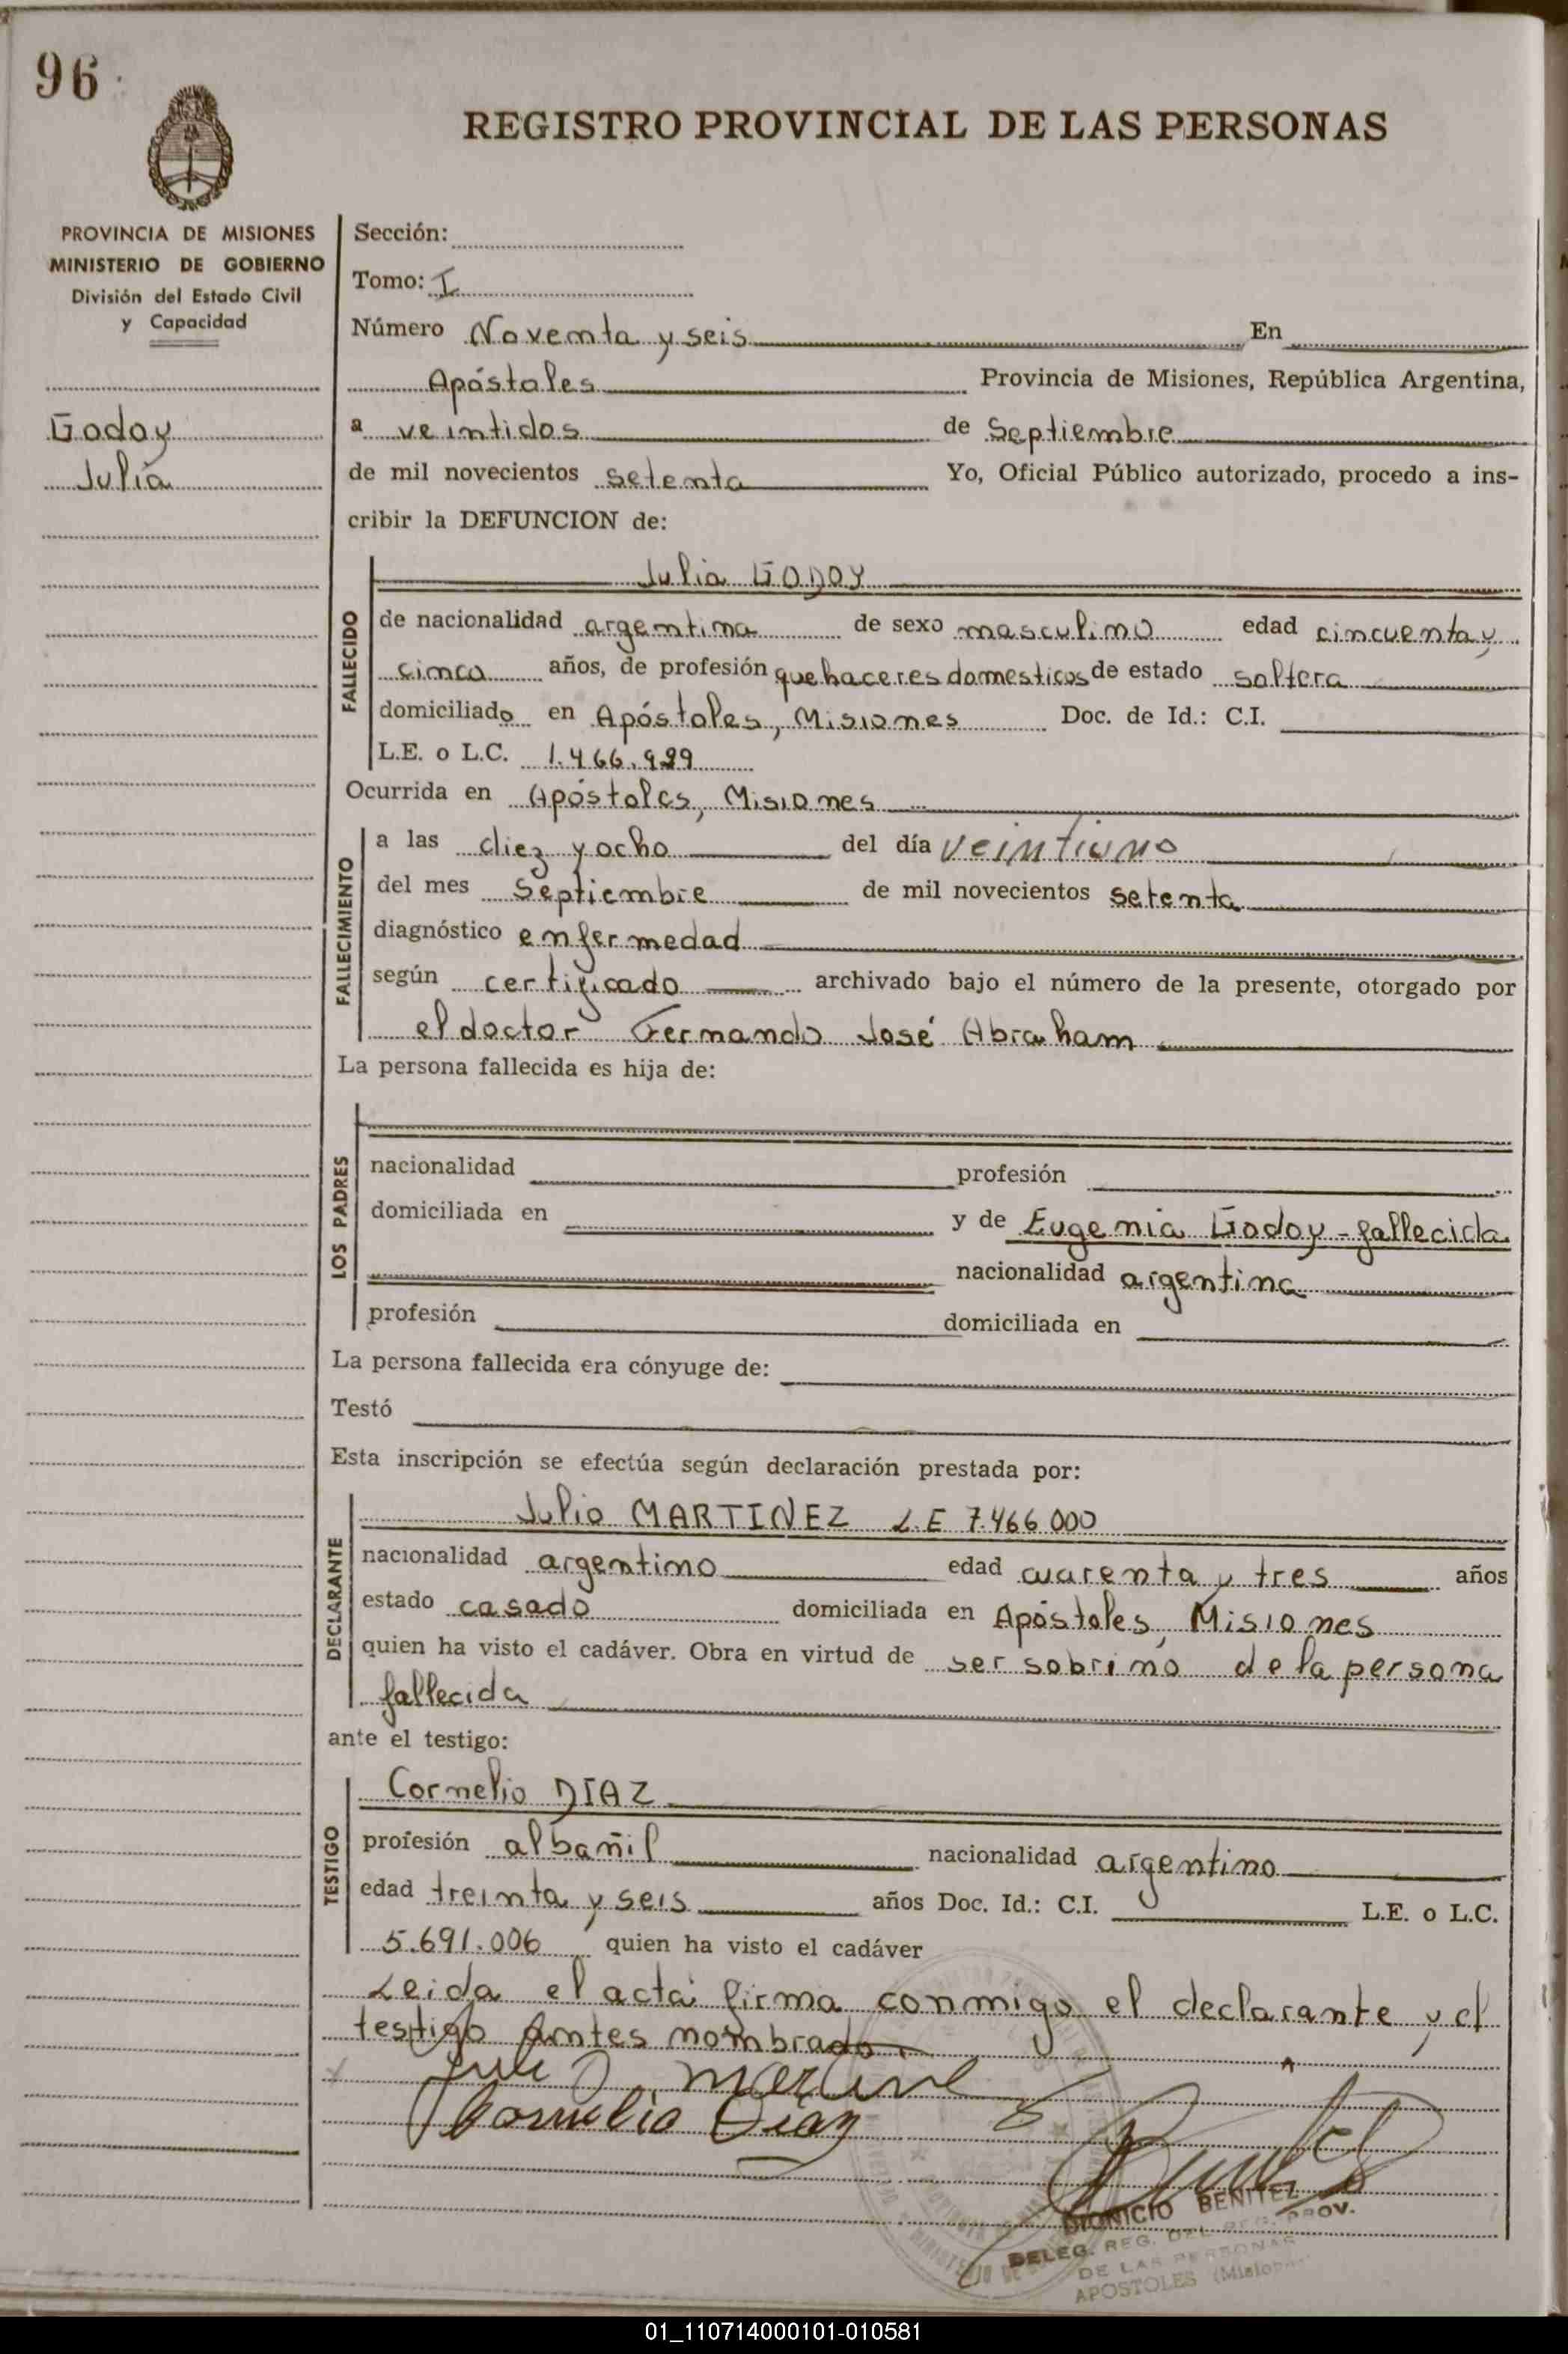 96
REGISTRO PROVINCIAL DE LAS PERSONAS
PROVINCIA DE MISIONES
MINISTERIO DE GOBIERNO
División del Estado Civil
y Capacidad
Godoy
Julia
Sección:
Tomo: I
Número Noventa y seis En
Apóstoles Provincia de Misiones, República Argentina,
a veintidos de Septiembre
de mil novecientos setenta Yo, Oficial Público autorizado, procedo a ins-
cribir la DEFUNCION de:
FALLECIDO
Julia GODOY
de nacionalidad argentina de sexo masculino edad cincuenta y
cinco años, de profesión quehaceres domesticos de estado soltera
domiciliado en Apóstoles, Misiones Doc. de Id.: C.I.
L.E. o L.C. 1.466.999
Ocurrida en Apóstoles, Misiones
FALLECIMIENTO
a las diez y ocho del día veintiuno
del mes Septiembre de mil novecientos setenta
diagnóstico enfermedad
según certificado archivado bajo el número de la presente, otorgado por
el doctor Fernando José Abraham
La persona fallecida es hija de:
LOS PADRES
nacionalidad profesión
domiciliada en y de Eugenia Godoy - fallecida
nacionalidad argentina
profesión domiciliada en
La persona fallecida era cónyuge de:
Testó
Esta inscripción se efectúa según declaración prestada por:
DECLARANTE
Julio MARTINEZ L.E 7.466.000
nacionalidad argentino edad cuarenta y tres años
estado casado domiciliada en Apóstoles, Misiones
quien ha visto el cadáver. Obra en virtud de ser sobrino de la persona
fallecida
ante el testigo:
TESTIGO
Cornelio DIAZ
profesión albañil nacionalidad argentino
edad treinta y seis años Doc. Id.: C.I. L.E. o L.C.
5.691.006 quien ha visto el cadáver
Leida el acta firma conmigo el declarante y el
testigo antes nombrado.
Cornelio Diaz
DIONICIO BENITEZ
DELEG. REG. DEL REG. PROV.
DE LAS PERSONAS
APOSTOLES
01_110714000101-010581